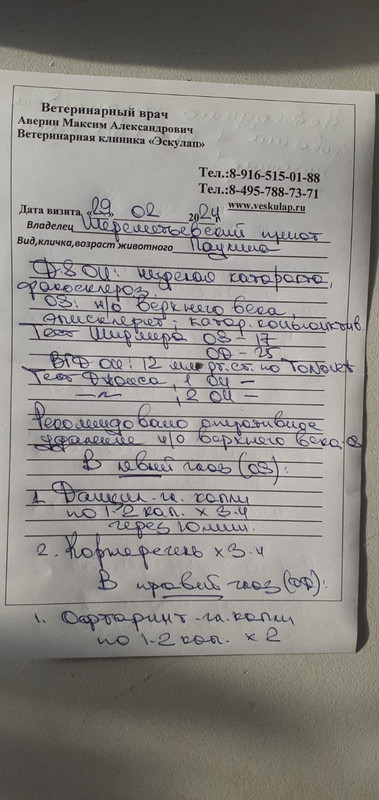 Ветеринарный врач
Аверин Максим Александрович
Ветеринарная клиника «Эскулап»
Тел.:8-916-515-01-88
Тел.:8-495-788-73-71
www.veskulap.ru
Дата визита, «29» 02 2024 г.
Владелец Шереметьевский приют
Вид,кличка,возраст животного Паулина
D-S OU: незрелая катаракта,
факосклероз
OS: н/о верхнего века,
эписклерит, катар. конъюнктив.
Тест Ширмера OS - 17
OD - 25
ВГД OU: 12 мм рт.ст. по Tonovet
Тест Джонса, 1 OU -
-"- , 2 OU -
Рекомендовано оперативное
удаление н/о верхнего века OS
В левый глаз (OS):
1. Данцил - гл. капли
по 1-2 кап. х 3-4
через 10 мин.
2. Корнерегель х 3-4
В правый глаз (OD):
1. гл. капли
по 1-2 кап. х 2